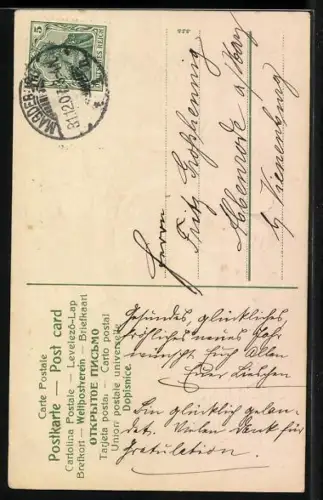 5
DEUTSCHES REICH
MAGDEBURG
31.12.07
Carte Postale
Postkarte — Post card
Cartolina Postale — Levelező-Lap
Brefkort — Weltpostverein — Briefkaart
ОТКРЫТОЕ ПИСЬМО
Tarjeta postal — Carto postal
Union postale universelle
Dopisnice.
Herrn
Fritz
Abbenrode a/Harz
b/ Vienenburg
Gesundes, glückliches,
fröhliches neues Jahr
wünscht Euch allen
Euer Lieschen
Bin glücklich gelan-
det. Vielen Dank für
Gratulation.